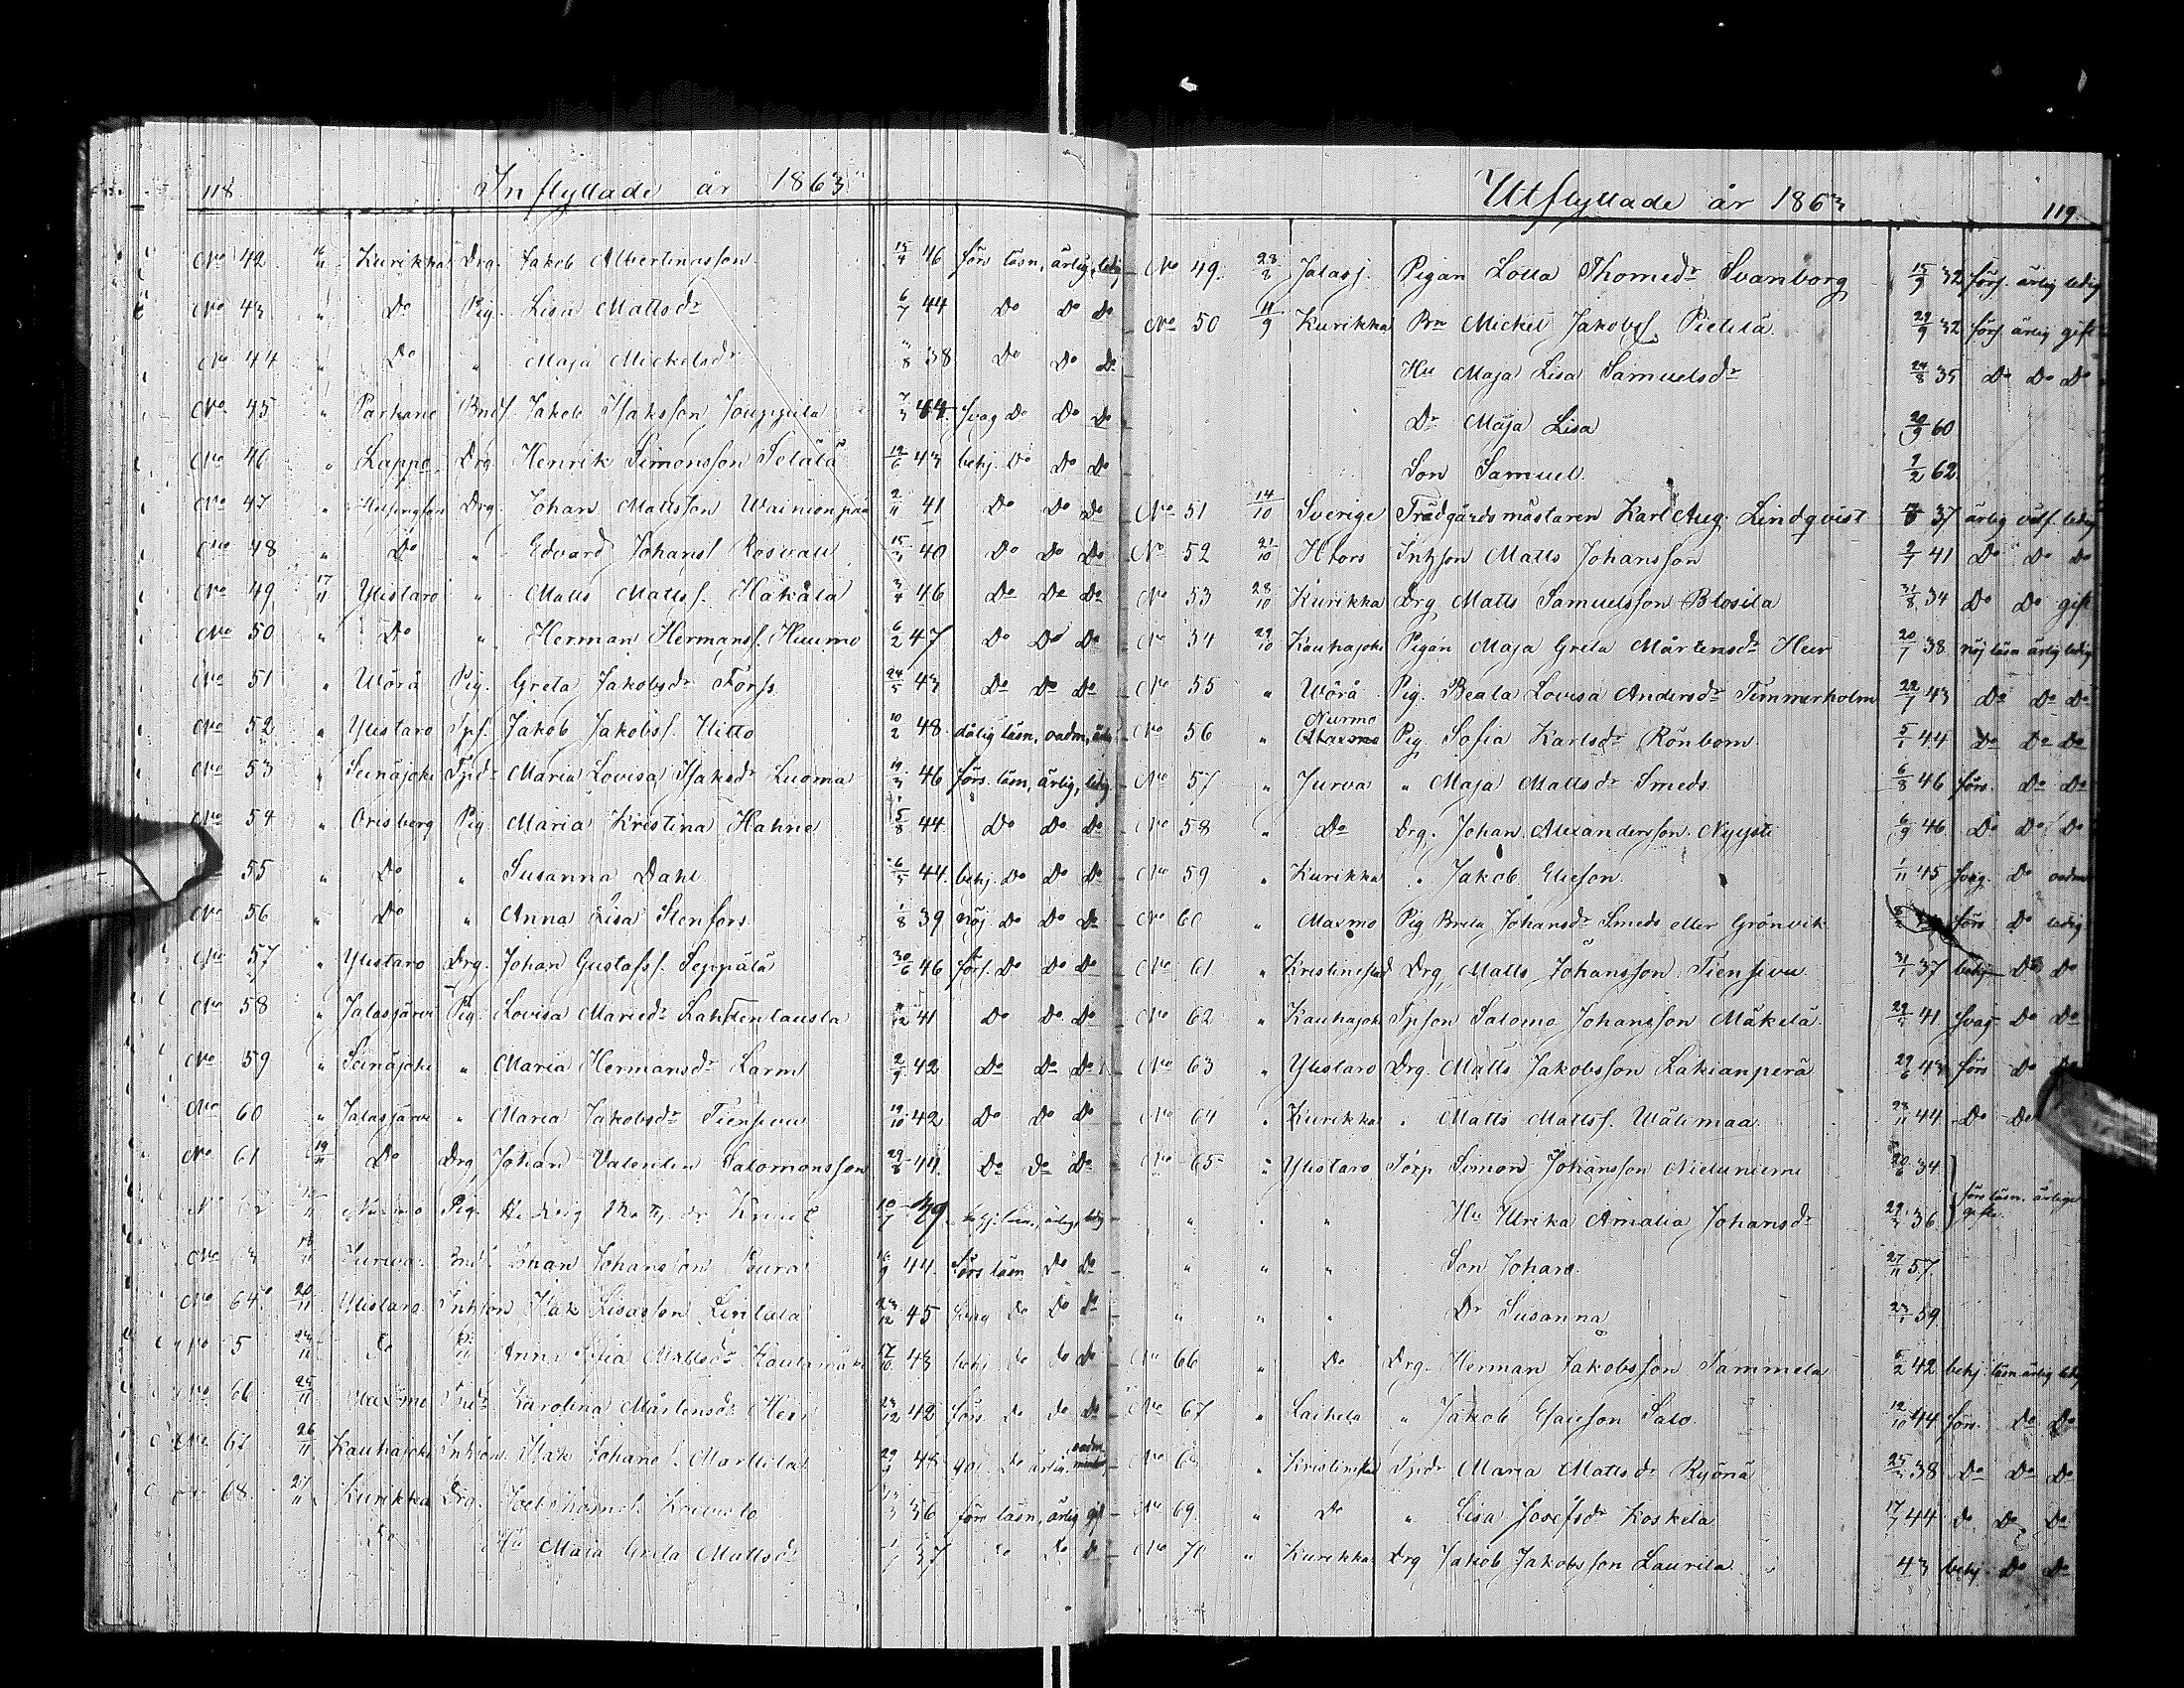 118.
Inflyttade år 1863
No 42 16/11 Kurikka Drg. Jakob Albertinasson 15/4 46 förs. läsn, ärlig, ledig
No 43 " Do Pig. Lisa Mattsdr 6/7 44 Do Do Do
No 44 " Do " Maja Mickelsdr 8 38 Do Do Do
No 45 " Parkano Bnds. Jakob Isaksson Jouppila 7/3 44. svag Do Do Do
No 46 " Lappo Drg Henrik Simonsson 12/6 43 behj. Do Do Do
No 47 " Drg. Johan Mattsson Wainionpää 2/11 41 Do Do Do
No 48 " Do " Edvard Johanss. 15/3 40 Do Do Do
No 49 17/11 Ylistaro " Matts Mattss. Hakala 3/4 46 Do Do Do
No 50 " Do " Herman Hermanss. Huumo 6/2 47 Do Do Do
No 51 " Wörå Pig. Greta Jakobsdr Forss 24/5 43 Do Do Do
No 52 " Ylistaro Tps. Jakob Jakobss. Uitto 10/2 48. dålig läsn, oadm,
No 53 " Seinäjoki Tpdr Maria Lovisa Isaksdr Luoma 19/3 46 förs. läsn, ärlig, ledig
No 54 " Orisberg Pig. Maria Kristina Hahne 5/8 44. Do Do Do
55 " Do " Susanna Dahl 6/5 44. behj. Do Do Do
No 56 " Do " Anna Lisa Stenfors 1/8 39 nöj Do Do Do
No 57 " Ylistaro Drg. Johan Gustafss. Seppälä 30/6 46 förs. Do Do Do
No 58 " Jalasjärvi Pig. Lovisa Mariedr Lahdentausta 12 41 Do Do Do
No 59 " Seinäjoki " Maria Hermansdr Larm 2/9 42 Do Do Do
No 60 " Jalasjärvi " Maria Jakobsdr Tiensivu 19/10 42 Do Do Do
No 61 19/11 Do Drg. Johan Valentin Salomonsson 29/8 44. Do Do Do
Pig. Hedvig 10/7 läsn, ärlig, ledig
No 63 Jurva Johan Johansson 9 44. förs läsn Do Do
No 64. 20/11 Ylistaro Inhson Isak Lisasson Lintala 23/12 45 svag Do Do Do
No 5 24/11 Do Anna Sofia Mattsdr 17/10 43 behj Do Do Do
No 66 25/11 Maxmo Karolina Mårtensdr Heir 23/12 42 förs. Do Do Do
No 67 26/11 Kauhajoki Inhson Isak Johans. Marttila 29 48 Do ärlig. oadm.
68. 27/11 Kurikka Drg. Koivisto 3 36 förs läsn, ärlig gift
Do Hu Maja Greta Mattsdr 37 Do Do Do
Utflyttade år 1863
119.
No 49. 28/8 Jalasj. Pigan Lotta Thomedr Svanborg 15/9 32 förs. ärlig ledig
No 50 11/9 Kurikka Bn Mickel Jakobss. Pietilä 29/9 32 förs. ärlig gift
Hu Maja Lisa Samuelsdr 24/8 35 Do Do Do
Dr Maja Lisa 20/9 60
Son Samuel. 9/2 62.
No 51 14/10 Sverige Trädgårdsmästaren Karl Aug. Lindqvist 37 ärlig välf. ledig
No 52 21/10 Hfors Inhson Matts Johansson 2/7 41 Do Do Do
No 53 28/10 Kurikka Drg Matts Samuelsson Blosila 31/8 34 Do Do gift
No 54 29/10 Kauhajoki Pigan Maja Greta Mårtensdr Heir 20/7 38 nöj läsn ärlig ledig
No 55 " Wörå Pig. Beata Lovisa Andersdr Timmerholm 22/7 43 Do Do Do
No 56 " Nurmo Maxmo Pig. Sofia Karlsdr Rönbom 5/1 44 Do Do Do
No 57 " Jurva " Maja Mattsdr Smeds 6/8 46 förs. Do Do
No 58 " Do Drg. Johan Alexandersson Nyysti 6/9 46. Do Do Do
No 59 " Kurikka " Jakob Elieson. 1/11 45 svag. Do oadm
No 60 " Maxmo Pig Brita Johansdr Smeds eller Grönvik förs Do ledig
No 61 " Kristinestad Drg, Matts Johansson Tiensivu 31/1 37 behj Do Do
No 62 " Kauhajoki Tpson Salomo Johansson Mäkelä 29 41 svag Do Do
No 63 " Ylistaro Drg. Matts Jakobsson Lakianperä 29/6 43 förs Do
No 64 " Kurikka " Matts Mattss. Wälimaa 28/11 44 Do Do
No 65 " Ylistaro Torp Simon Johansson Nieluniemi 20/6 34
förs läsn. ärliga gifta.
" " " Hu Ulrika Amalia Johansdr 29/3 36
" " " Son Johan. 27/11 57
" " " Dr Susanna 23/1 59.
No 66 " Do Drg. Herman Jakobsson Tammela 5/2 42 behj. läsn ärlig ledig
No 67 " Laihela " Jakob Esaieson Salo. 12/10 44 förs. Do Do
No 68 " Kristinestad Tpdr Maria Mattsdr Ryönä 25/3 38 Do Do Do
No 69 " Do " Lisa Josefsdr Koskela 17/7 44 Do Do Do
No 70 " Kurikka Drg Jakob Jakobsson Laurila 43 behj. Do Do